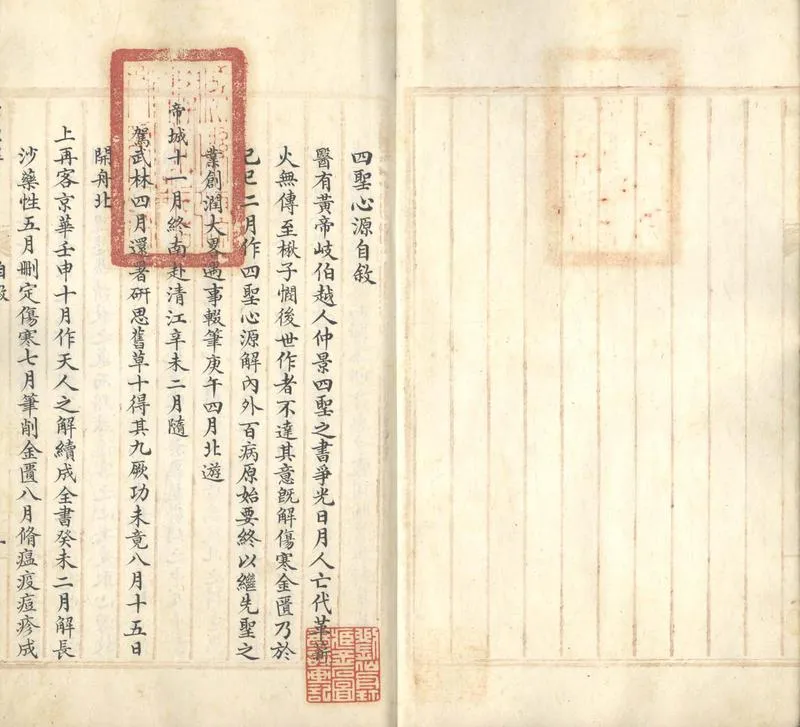 四聖心源自敘
醫有黃帝岐伯越人仲景四聖之書爭光日月人亡代革薪
火無傳至楸子憫後世作者不達其意既解傷寒金匱乃於
己巳二月作四聖心源解內外百病原始要終以繼先聖之
業創潤大畧遇事輟筆庚午四月北遊
帝城十一月終南赴清江辛未二月隨
駕武林四月還署研思舊草十得其九厥功未竟八月十五日
開舟北
上再客京華壬申十月作天人之解續成全書癸未二月解長
沙藥性五月刪定傷寒七月筆削金匱八月脩瘟疫痘疹成